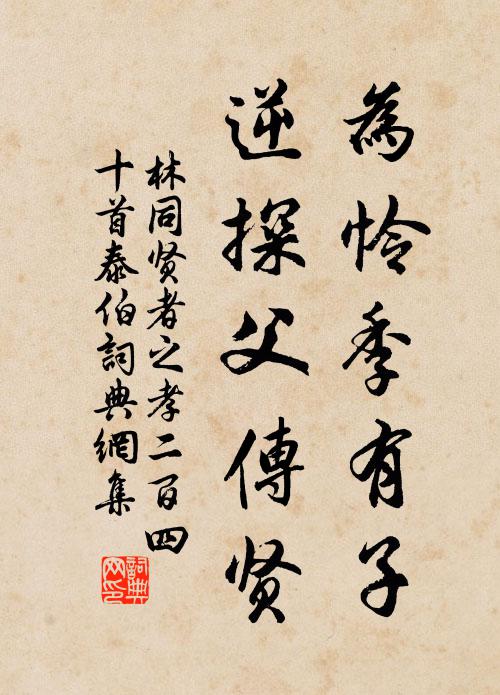 為怜季有子
逆探父傳贤
林同贤者之孝二百四
十首泰伯詞典網集
詞典网印